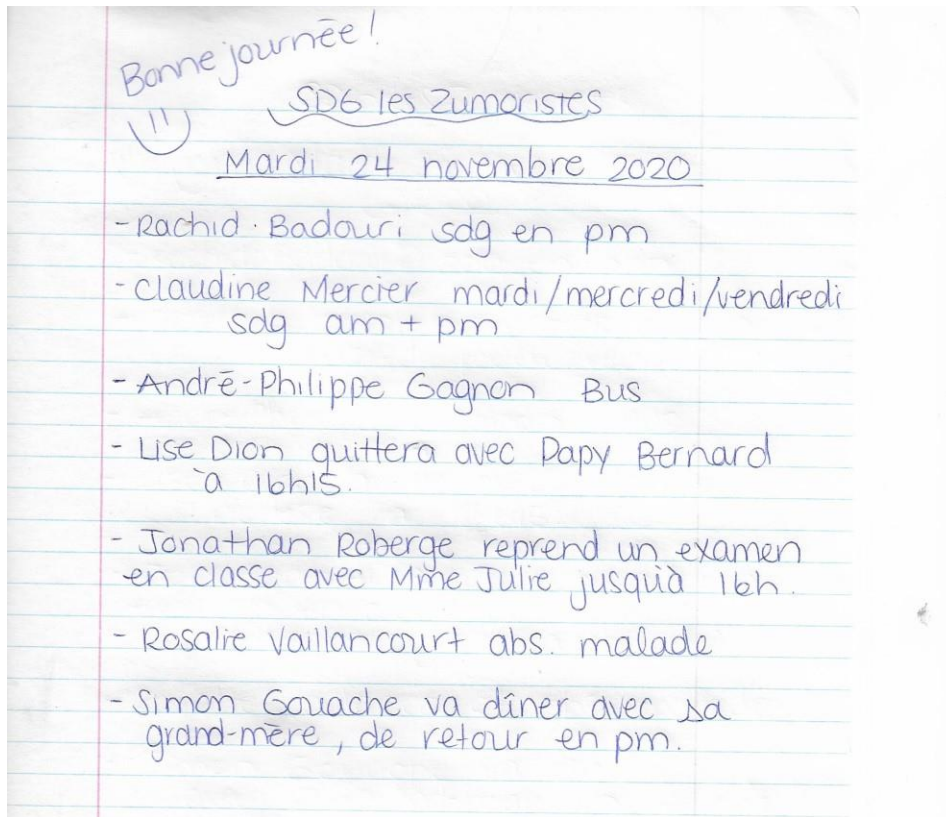 Bonne journée!
SDG les Zumoristes
Mardi 24 novembre 2020
- Rachid Badouri sdg en pm
- Claudine Mercier mardi/mercredi/vendredi
sdg am + pm
- André-Philippe Gagnon Bus
- Lise Dion quittera avec Papy Bernard
à 16h15.
- Jonathan Roberge reprend un examen
en classe avec Mme Julie jusquà 16h.
- Rosalie Vaillancourt abs. malade
- Simon Gouache va dîner avec sa
grand-mère, de retour en pm.